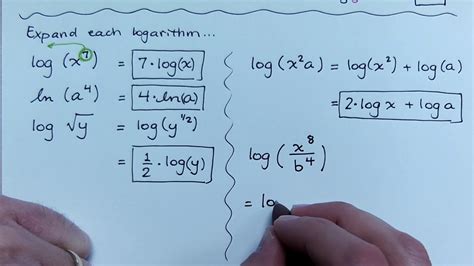 Expand each logarithm...
log (x⁷) = 7·log(x)
ln (a⁴) = 4·ln(a)
log √y = log(y^½)
= ½·log(y)
log(x²a) = log(x²) + log(a)
= 2·log x + log a
log(x⁸/b⁴)
= lo